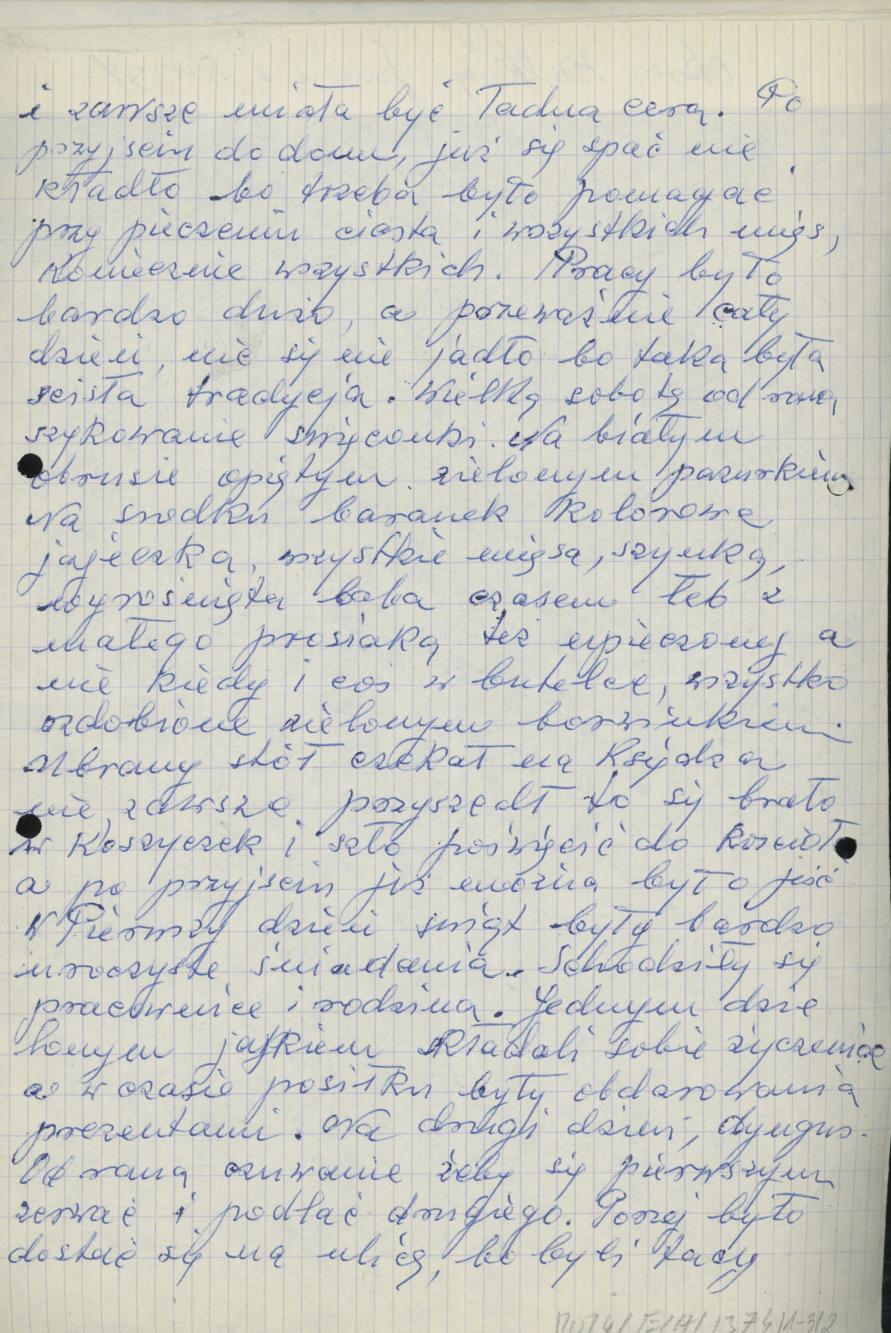 i zawsze miała być ładna cera. Po
przyjściu do domu, już się spać nie
kładło bo trzeba było pomagać
przy pieczeniu ciasta i wszystkich mięs,
Koniecznie wszystkich. Pracy było
bardzo dużo, a przeważnie cały
dzień, nic się nie jadło bo taka była
scisła tradycja. Wielką sobotę od rana
szykowanie święconki. Na białym
obrusie opiętym zielonym pazurkiem
Na srodku baranek Kolorowe
jajeczka, wszystkie mięsa, szynka,
wyrośnięta baba czasem łeb z
małego prosiaka też upieczony a
nie kiedy i coś w butelce, wszystko
ozdobione zielonym borwinkiem.
Ubrany stół czekał na Księdza
nie zawsze przyszedł to się brało
w Koszyczek i szło poświęcić do Kościoł
a po przyjściu już można było jeść
W Pierwszy dzień świąt były bardzo
uroczyste śniadania. Schodziły się
pracownice i rodzina. Jednym dzie
lonym jajkiem składali sobie życzenia
a w czasie posiłku były obdarowania
prezentami. Na drugi dzień, dyngus.
Od rana czuwanie żeby się pierwszym
zerwać i podlać drugiego. Gorzej było
dostać się na ulicę, bo byli tacy